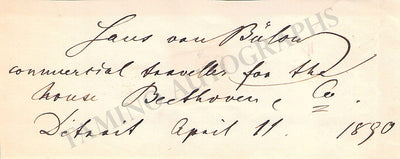 Hans von Bülow
commercial traveller for the
house Beethoven, & Co.
Détroit April 11. 1890
TAMINO AUTOGRAPHS